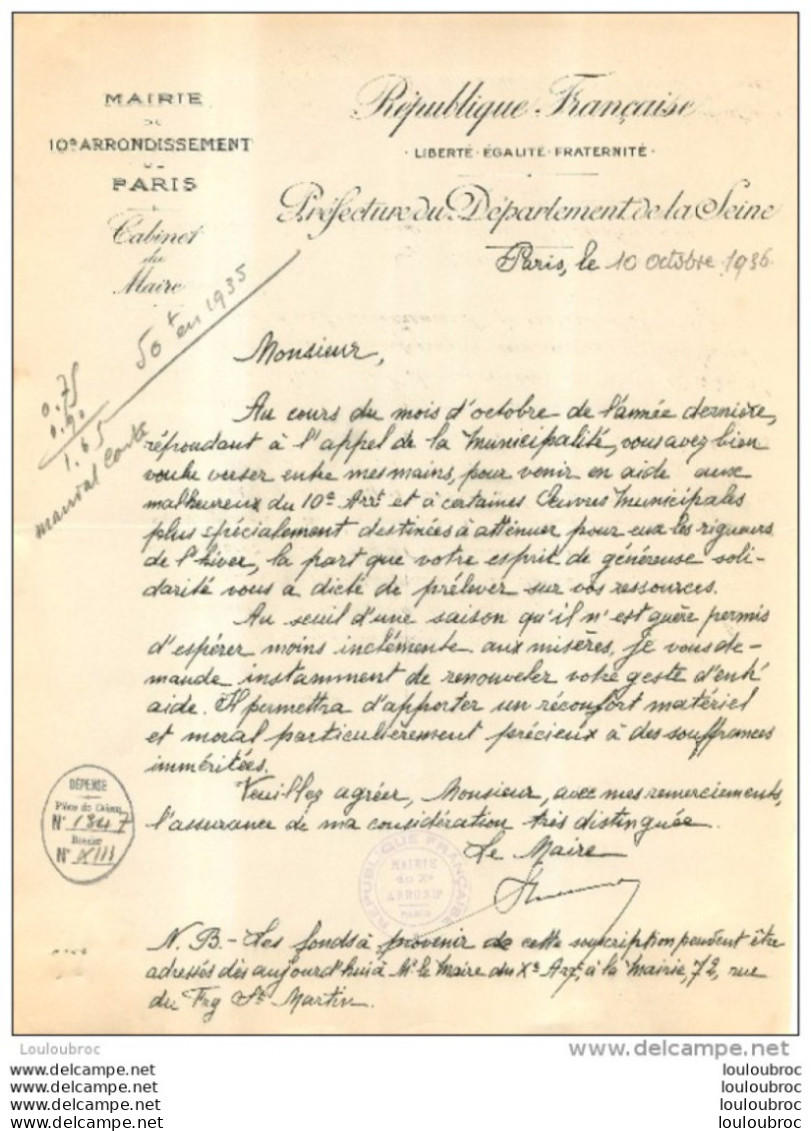 MAIRIE
DU
10e ARRONDISSEMENT
DE
PARIS
Cabinet
du
Maire
République Française
· LIBERTÉ · ÉGALITÉ · FRATERNITÉ ·
Préfecture du Département de la Seine
Paris, le 10 octobre 1936
50f en 1935
0.75
0.90
1.65
mandat carte
Monsieur,
Au cours du mois d'octobre de l'année dernière,
répondant à l'appel de la Municipalité, vous avez bien
voulu verser entre mes mains, pour venir en aide aux
malheureux du 10e Arrt et à certaines Œuvres Municipales
plus spécialement destinées à atténuer pour eux les rigueurs
de l'hiver, la part que votre esprit de généreuse soli-
darité vous a dicté de prélever sur vos ressources.
Au seuil d'une saison qu'il n'est guère permis
d'espérer moins inclémente aux misères, je vous de-
mande instamment de renouveler votre geste d'entr'
aide. Il permettra d'apporter un réconfort matériel
et moral particulièrement précieux à des souffrances
imméritées.
Veuillez agréer, Monsieur, avec mes remerciements,
l'assurance de ma considération très distinguée.
Le Maire
DÉPENSE
Pièce de Caisse
N° 1347
Dossier
N° XIII
RÉPUBLIQUE FRANÇAISE
MAIRIE
du Xe
ARRONDt
PARIS
N.B. - Les fonds à provenir de cette souscription peuvent être
adressés dès aujourd'hui à Mr le Maire du Xe Arrt, à la Mairie, 72, rue
du Fbg St Martin.
Louloubroc
delcampe.net
louloubroc
louloubroc
louloubroc
louloubroc
www.delcampe.net
www.delcampe.net
www.delcampe.net
www.delcampe.net